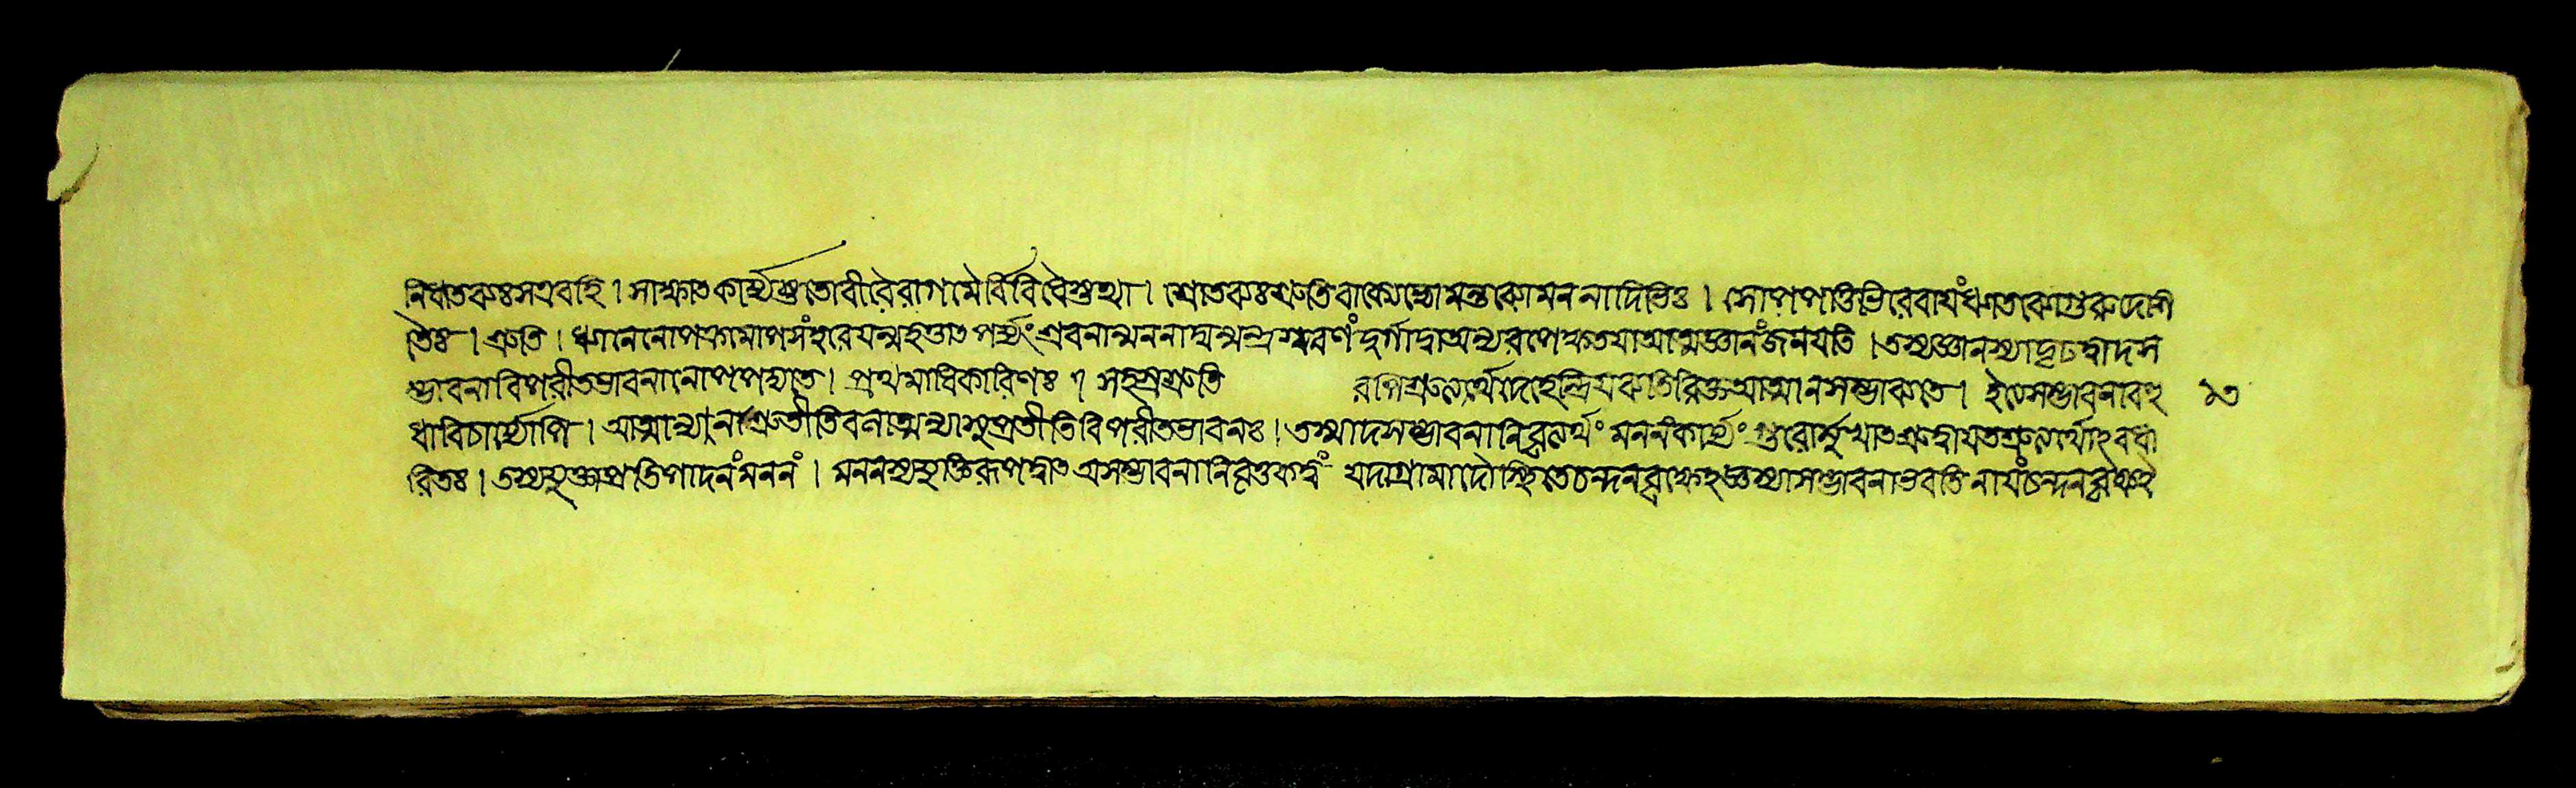 নিধাতব্যঃ স এব হি । সাক্ষাত কার্য্যশ্রুতো বীরৈরাগমৈর্বিবিধৈশ্তথা । শ্রোতব্যঃ শ্রুতিবাক্যেভ্যো মন্তব্যো মননাদিভিঃ । সোপপত্তিভিরেবায়ং ধ্যাতব্যো গুরুদেশি
তৈঃ । শ্রুতি । ধ্যানেনোপক্রমোপসংহারেয়ন্মহত্তাত পর্য্যং শ্রবনান্মননাদ্যন্মন্ত্র স্মরণং দুর্গাদ্বা অন্যরপেক্ষতয়া আত্মজ্ঞানং জনয়তি । তস্যজ্ঞানস্যাদৃঢত্বাদস
ম্ভাবনা বিপরীতভাবনা নোপপদ্যতে । প্রথমাধিকারিণঃ । সহস্রশ্রুতি রপিশ্রুত্যর্থাদেহেন্দ্রিয়ব্যতিরিক্ত আত্মা ন সম্ভাব্যতে । ইতেসম্ভাবনা বহু ১৩
ধা বিচার্য্যোপি । আত্মান্যানা শ্রুতীতিবনাত্মন্যাসুপ্রতীতি বিপরীতভাবনঃ । তস্মাদসম্ভাবনা নিবৃত্যর্থং মননং কার্য্যং গুরোর্মুখাত শ্রুদ্বায়ত শ্রুত্যর্থোঽবধা
রিতঃ । তস্যযুক্ত্যাপ্রতিপাদনং মননং । মননস্য যুক্তিরূপত্বাত এসম্ভাবনা নিবৃত্তকত্বং যদাগ্রামাদৌ স্থিতে চন্দনবৃক্ষেঽজ্ঞস্যাসম্ভাবনা ভবতি নায়ং চন্দনবৃক্ষঽ